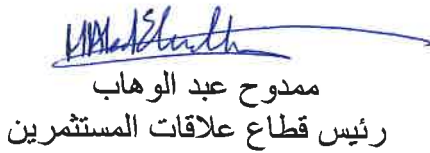 ممدوح عبد الوهاب
رئيس قطاع علاقات المستثمرين